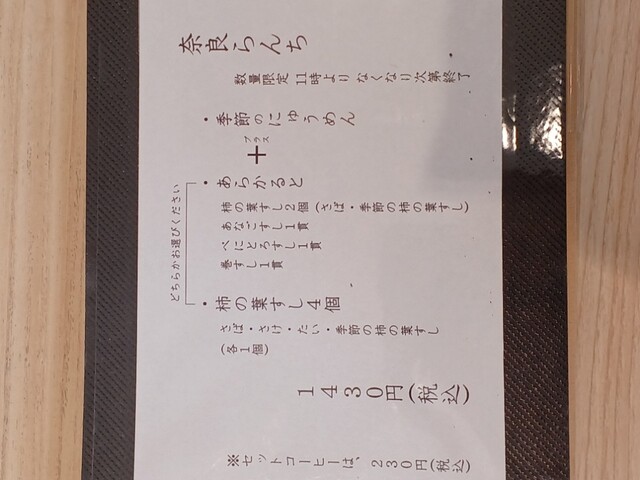 奈良らんち
数量限定 11時より なくなり次第終了
・季節のにゅうめん
プラス
＋
どちらかお選びください
・あらかると
柿の葉すし2個 (さば・季節の柿の葉すし)
あなごすし1貫
べにとろすし1貫
巻すし1貫
・柿の葉すし4個
さば・さけ・たい・季節の柿の葉すし
(各1個)
1430円(税込)
※セットコーヒーは、230円(税込)